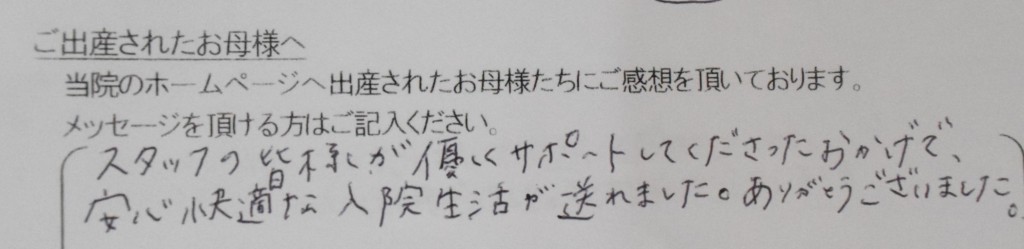 ご出産されたお母様へ
当院のホームページへ出産されたお母様たちにご感想を頂いております。
メッセージを頂ける方はご記入ください。
スタッフの皆様が優しくサポートしてくださったおかげで、
安心快適な入院生活が送れました。ありがとうございました。